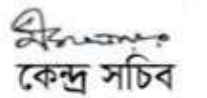 কেন্দ্র সচিব